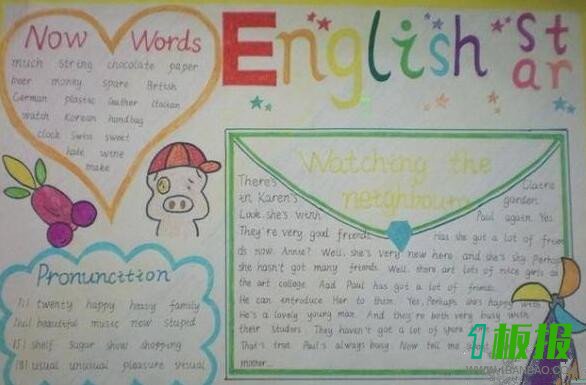 Now Words
much string chocolate paper
beer money spare British
German plastic leather Italian
watch Korean handbag
clock Swiss sweet
hate wine
make
English Star
Watching the neighbours
There's Claire
in Karen's garden.
Look, she's with Paul again. Yes.
They're very good friends. Has she got a lot of frien
ds now. Annie? Well, she's very new here and she's shy. Perhaps
she hasn't got many friends. Well, there are lots of nice girls at
the art college. And Paul has got a lot of friends.
He can introduce Her to them. Yes, Perhaps she's happy with
He's a lovely young man. And they're both very busy with
their studies They haven't got a lot of spare
That's true. Paul's always busy. Now tell me about
mother...
Pronunction
twenty happy heavy family
beautiful music new stupid
shelf sugar show shopping
usual unusual pleasure visual
1板报
WWW.1BANBAO.COM